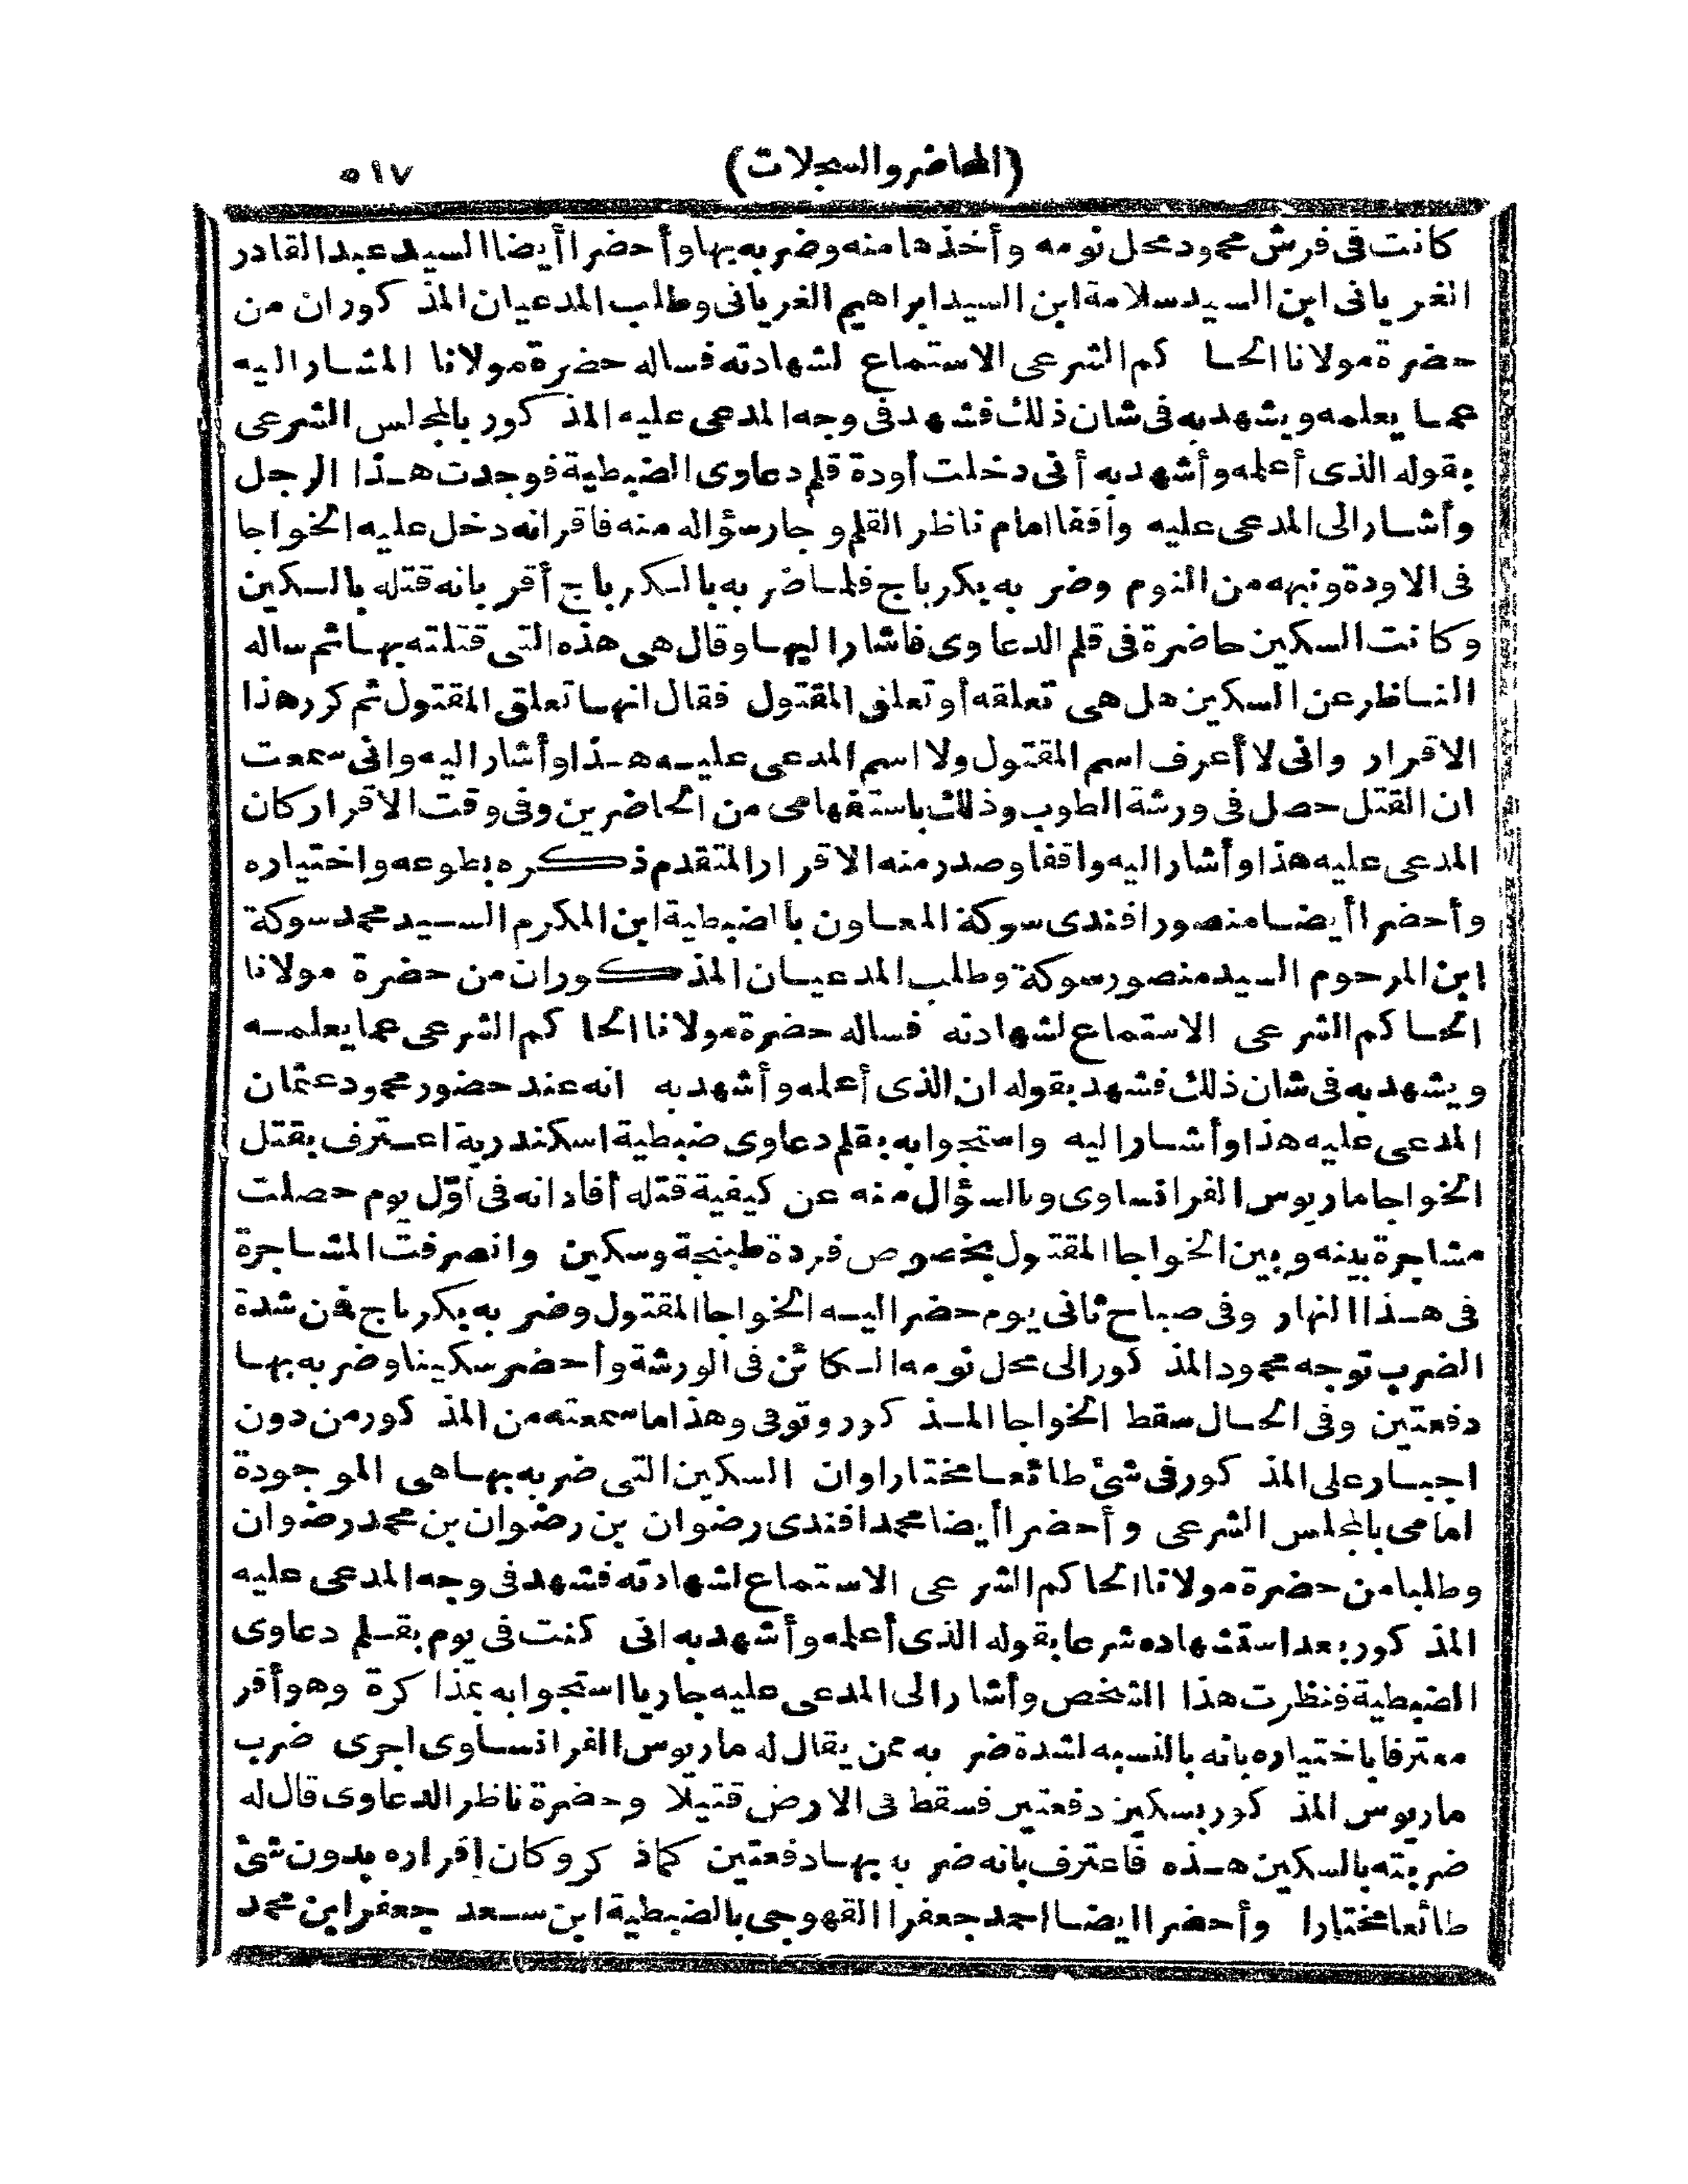 (المحاضر والسجلات) ٥١٧
كانت فى فرش محمود محل نومه وأخذها منه وضربه بها وأحضرا أيضا السيد عبد القادر
الغريانى ابن السيد سلامة ابن السيد ابراهيم الغريانى وطلب المدعيان المذكوران من
حضرة مولانا الحاكم الشرعى الاستماع لشهادته فساله حضرة مولانا المشار اليه
عما يعلمه ويشهد به فى شان ذلك فشهد فى وجه المدعى عليه المذكور بالمجلس الشرعى
بقوله الذى أعلمه وأشهد به أنى دخلت أودة قلم دعاوى الضبطية فوجدت هذا الرجل
وأشار الى المدعى عليه واقفا امام ناظر القلم وجار سؤاله منه فاقر انه دخل عليه الخواجا
فى الاودة ونبهه من النوم وضربه بكرباج فلما ضربه بالكرباج أقر بانه قتله بالسكين
وكانت السكين حاضرة فى قلم الدعاوى فاشار اليها وقال هى هذه التى قتلته بها ثم ساله
الناظر عن السكين هل هى تعلقه أو تعلق المقتول فقال انها تعلق المقتول ثم كرر هذا
الاقرار وانى لا أعرف اسم المقتول ولا اسم المدعى عليه هذا وأشار اليه وانى سمعت
ان القتل حصل فى ورشة الطوب وذلك باستفهامى من الحاضرين وفى وقت الاقرار كان
المدعى عليه هذا وأشار اليه واقفا وصدر منه الاقرار المتقدم ذكره بطوعه واختياره
وأحضرا أيضا منصور افندى سوكة المعاون بالضبطية ابن المكرم السيد محمد سوكة
ابن المرحوم السيد منصور سوكة وطلب المدعيان المذكوران من حضرة مولانا
الحاكم الشرعى الاستماع لشهادته فساله حضرة مولانا الحاكم الشرعى عما يعلمه
ويشهد به فى شان ذلك فشهد بقوله ان الذى أعلمه وأشهد به انه عند حضور محمود عثمان
المدعى عليه هذا وأشار اليه واستجوابه بقلم دعاوى ضبطية اسكندرية اعترف بقتل
الخواجا ماريوس الفرانساوى وبالسؤال منه عن كيفية قتله أفاد انه فى أوّل يوم حصلت
مشاجرة بينه وبين الخواجا المقتول بخصوص فردة طبنجة وسكين وانصرفت المشاجرة
فى هذا النهار وفى صباح ثانى يوم حضر اليه الخواجا المقتول وضربه بكرباج فمن شدة
الضرب توجه محمود المذكور الى محل نومه الكائن فى الورشة وأحضر سكينا وضربه بها
دفعتين وفى الحال سقط الخواجا المذكور وتوفى وهذا ما سمعته من المذكور من دون
اجبار على المذكور فى شئ طائعا مختارا وان السكين التى ضربه بها هى الموجودة
امامى بالمجلس الشرعى وأحضرا أيضا محمد افندى رضوان بن رضوان بن محمد رضوان
وطلبا من حضرة مولانا الحاكم الشرعى الاستماع لشهادته فشهد فى وجه المدعى عليه
المذكور بعد استشهاده شرعا بقوله الذى أعلمه وأشهد به انى كنت فى يوم بقلم دعاوى
الضبطية فنظرت هذا الشخص وأشار الى المدعى عليه جاريا استجوابه بمذاكرة وهو أقر
معترفا باختياره بانه بالنسبه لشدة ضربه ممن يقال له ماريوس الفرانساوى اجرى ضرب
ماريوس المذكور بسكين دفعتين فسقط فى الارض قتيلا وحضرة ناظر الدعاوى قال له
ضربته بالسكين هذه فاعترف بانه ضربه بها دفعتين كما ذكر وكان إقراره بدون شئ
طائعا مختارا وأحضرا ايضا احمد جعفر القهوجى بالضبطية ابن سعد جعفر ابن محمد